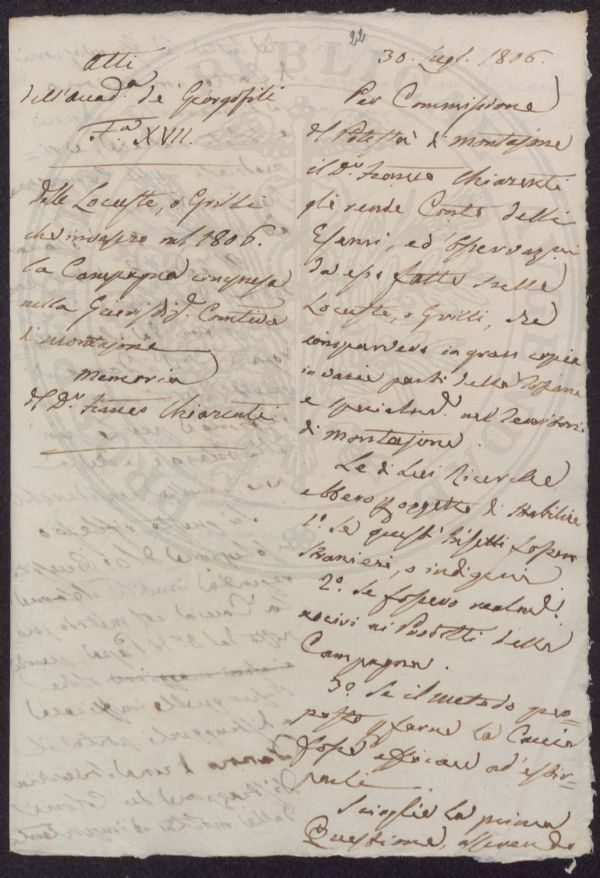 22
Atti
dell'Accad.a de Georgofili
F.a XVII.
Delle Locuste, o Grilli
che invasero nel 1806.
la Campagna compresa
nella Giurisdiz.e Comitiva
di Montajone
Memoria
del D.r Franco Chiarenti
30. Lugl. 1806.
Per Commissione
del Potestà di Montajone
il D.r Franco Chiarenti
gli rende Conto delli
Esami, ed Osservaz.ni
da esso fatte sulle
Locuste, o Grilli, che
comparvero in gran copia
in varie parti della Toscana
e specialm. nel Territorio
di Montajone.
Le di Lui Ricerche
ebbero p oggetto di stabilire
1.o Se questi Insetti fossero
stranieri, o indigeni
2.o Se fossero realm.
nocivi ai Prodotti della
Campagna.
3.o Se il metodo pro=
posto p farne la Caccia
fosse efficace ad estir=
parli.
Scioglie la prima
Questione, asserendo